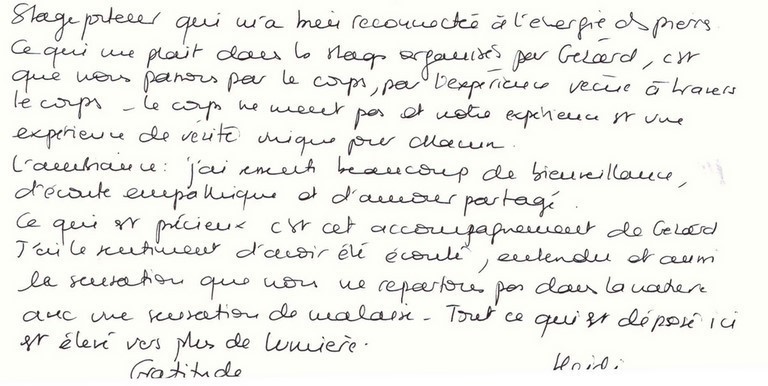 Stage porteur qui m'a bien reconnectée à l'énergie des pierres
Ce qui me plait dans les stages organisés par Gérard, c'est
que nous passons par le corps, par l'expérience vécue à travers
le corps - le corps ne ment pas et notre expérience est une
expérience de vérité unique pour chacun.
L'ambiance : j'ai ressenti beaucoup de bienveillance,
d'écoute empathique et d'amour partagé.
Ce qui est précieux c'est cet accompagnement de Gérard
J'ai le sentiment d'avoir été écouté, entendu et aussi
la sensation que nous ne repartons pas dans la matière
avec une sensation de malaise - Tout ce qui est déposé ici
est élevé vers plus de lumière.
Gratitude